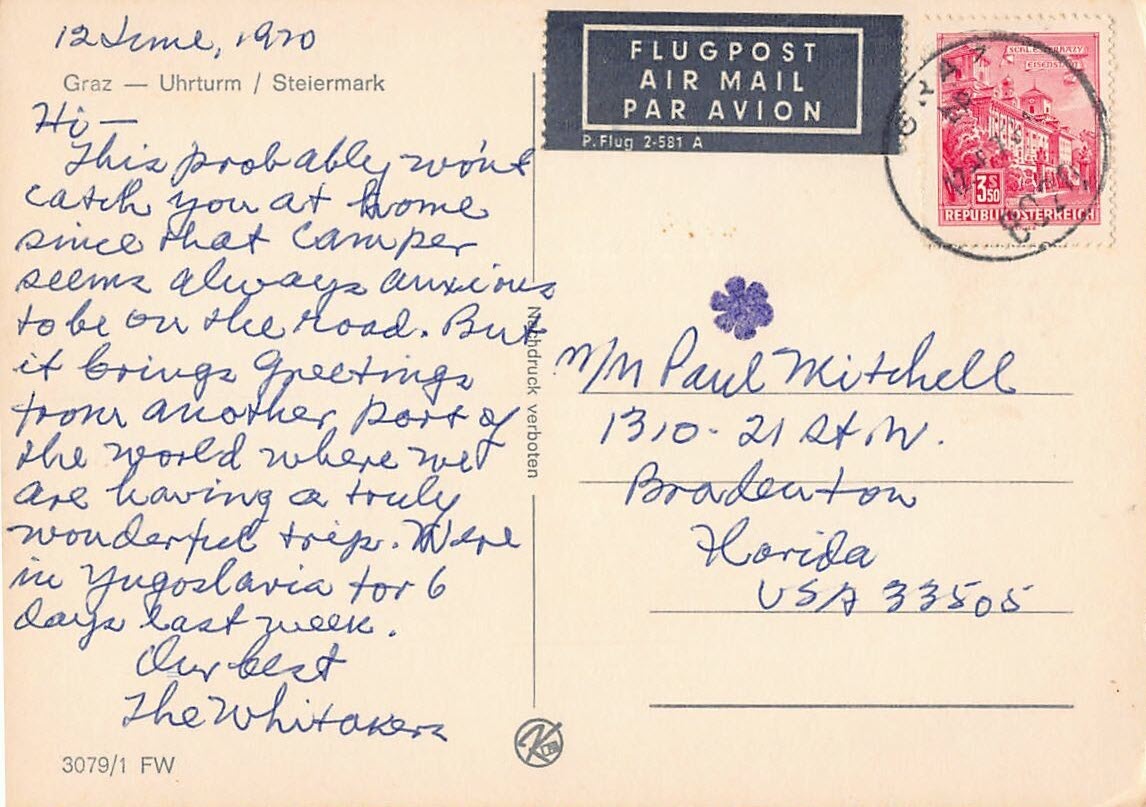 12 June, 1970
Graz — Uhrturm / Steiermark
Hi —
This probably won't
catch you at home
since that camper
seems always anxious
to be on the road. But
it brings Greetings
from another part of
the world where we
are having a truly
wonderful trip. Were
in Yugoslavia for 6
days last week.
Our best
The Whitakers
3079/1 FW
Nachdruck verboten
FLUGPOST
AIR MAIL
PAR AVION
P. Flug 2-581 A
SCHL. ESTERHAZY
EISENSTADT
3 S 50
REPUBLIK ÖSTERREICH
GRAZ
M/M Paul Mitchell
1310 - 21 St. W.
Bradenton
Florida
USA 33505